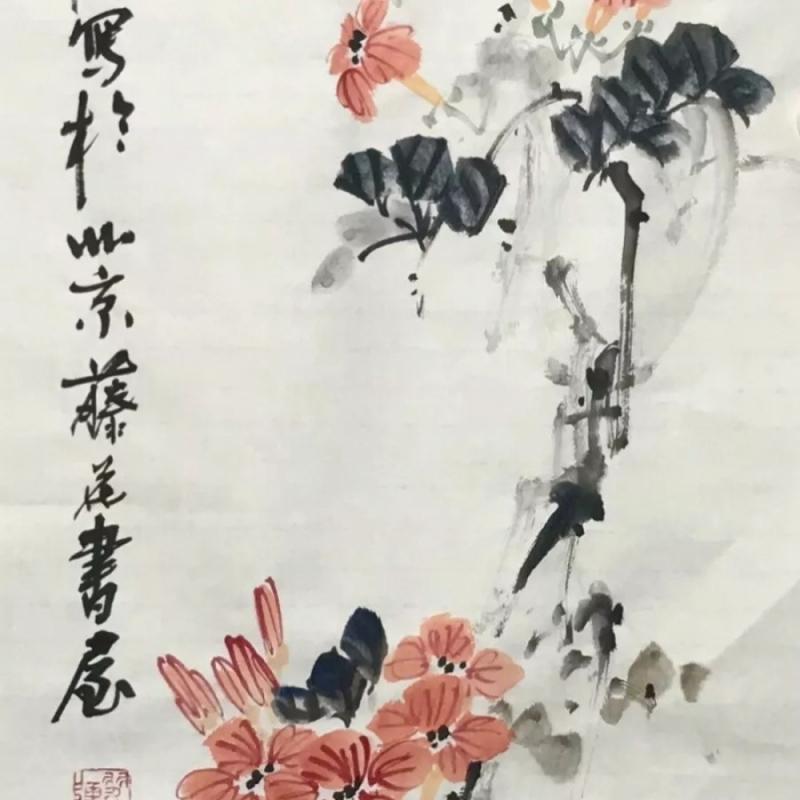 寫於北京藤花書屋